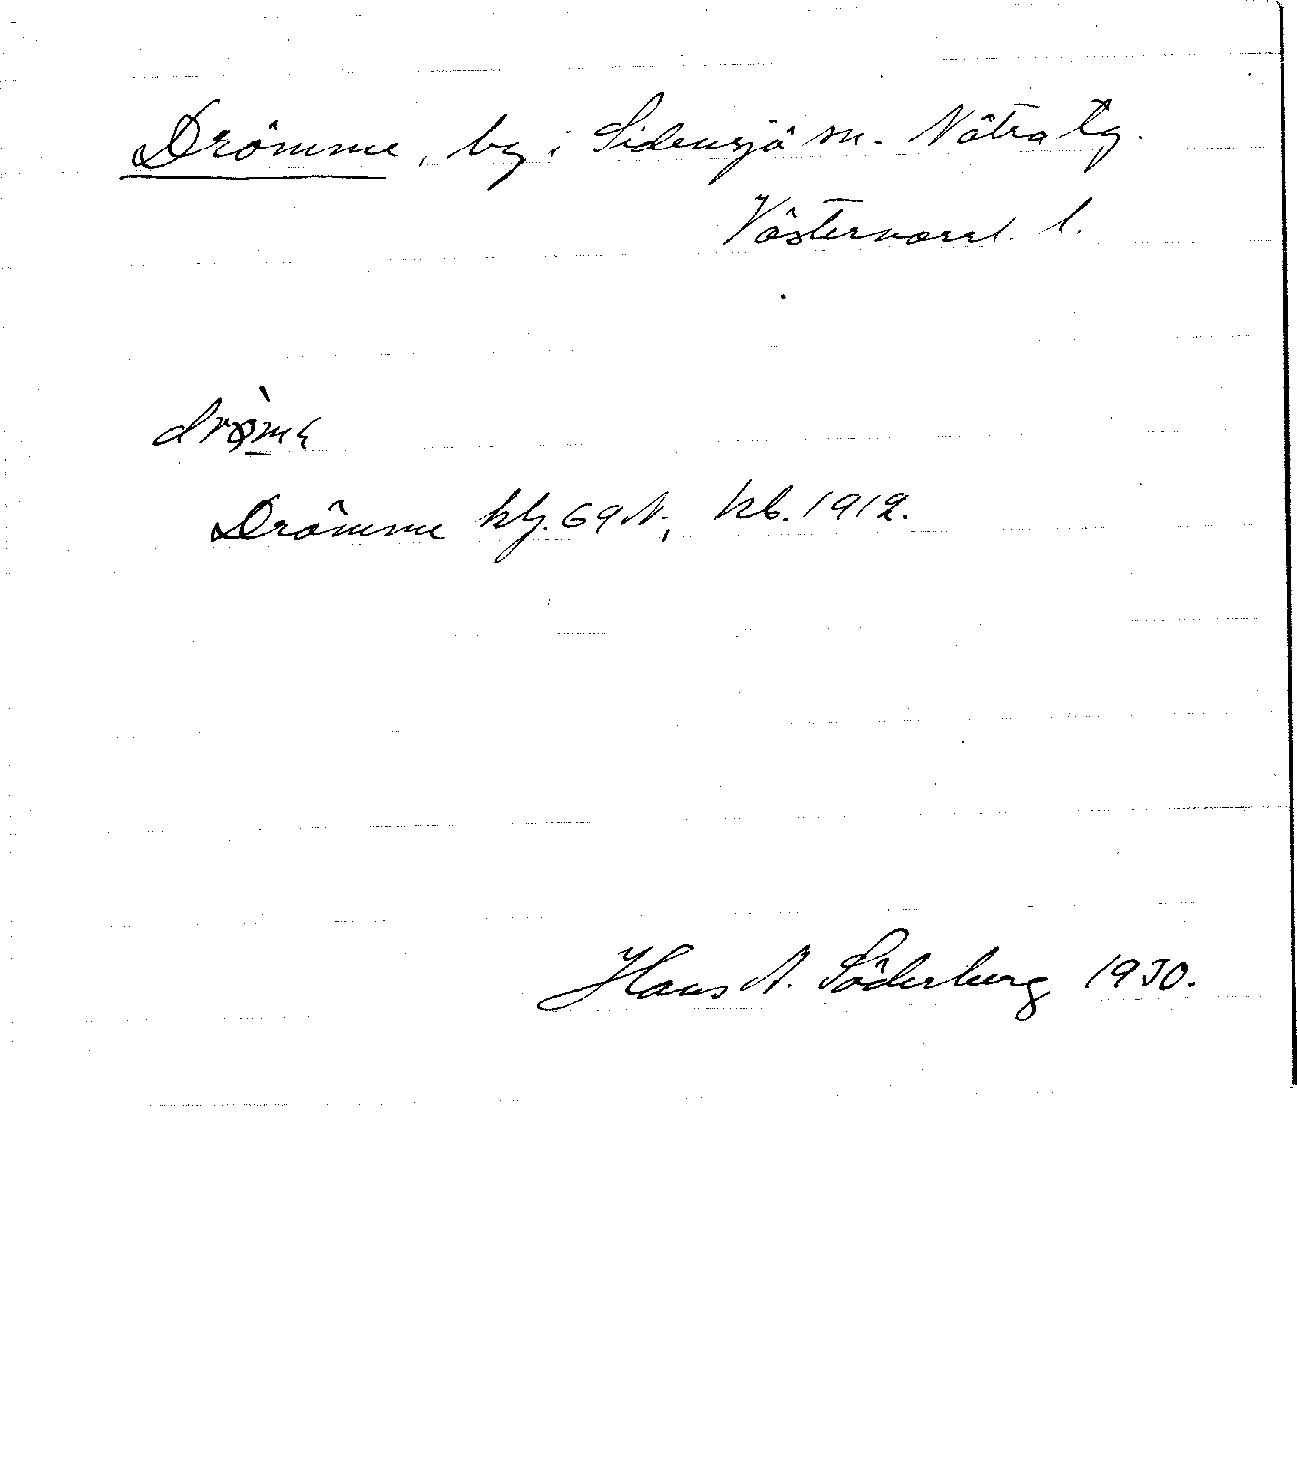 Drömme, by i Sidensjö sn. Nätra tg.
Västernorrl. l.
Drömme klj. 69 N, kb. 1912.
Hans N. Söderberg 1930.